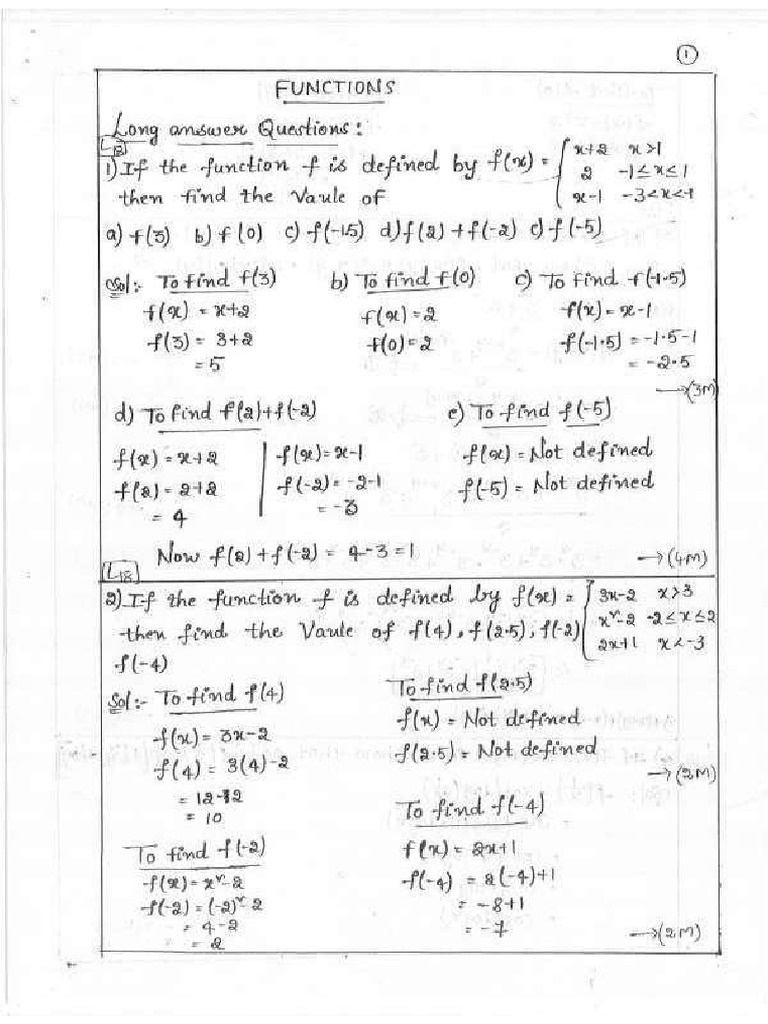 1
FUNCTIONS
Long answer Questions:
1) If the function f is defined by f(x) = { x+2 x>1
2 -1≤x≤1
x-1 -3<x<-1
then find the Vaule of
a) f(3) b) f(0) c) f(-1.5) d) f(2)+f(-2) e) f(-5)
Sol:- To find f(3) b) To find f(0) c) To find f(-1.5)
f(x) = x+2 f(x) = 2 f(x) = x-1
f(3) = 3+2 f(0) = 2 f(-1.5) = -1.5-1
= 5 = -2.5
→(3M)
d) To find f(2)+f(-2) e) To find f(-5)
f(x) = x+2 f(x) = x-1 f(x) = Not defined
f(2) = 2+2 f(-2) = -2-1 f(-5) = Not defined
= 4 = -3
Now f(2)+f(-2) = 4-3 = 1 →(4M)
L18
2) If the function f is defined by f(x) = { 3x-2 x>3
x²-2 -2≤x≤2
2x+1 x<-3
then find the Vaule of f(4), f(2.5), f(-2)
f(-4)
Sol:- To find f(4) To find f(2.5)
f(x) = 3x-2 f(x) = Not defined
f(4) = 3(4)-2 f(2.5) = Not defined
→(2M)
= 10 To find f(-4)
To find f(-2) f(x) = 2x+1
f(x) = x²-2 f(-4) = 2(-4)+1
f(-2) = (-2)²-2 = -8+1
= 4-2 = -7 →(2M)
= 2